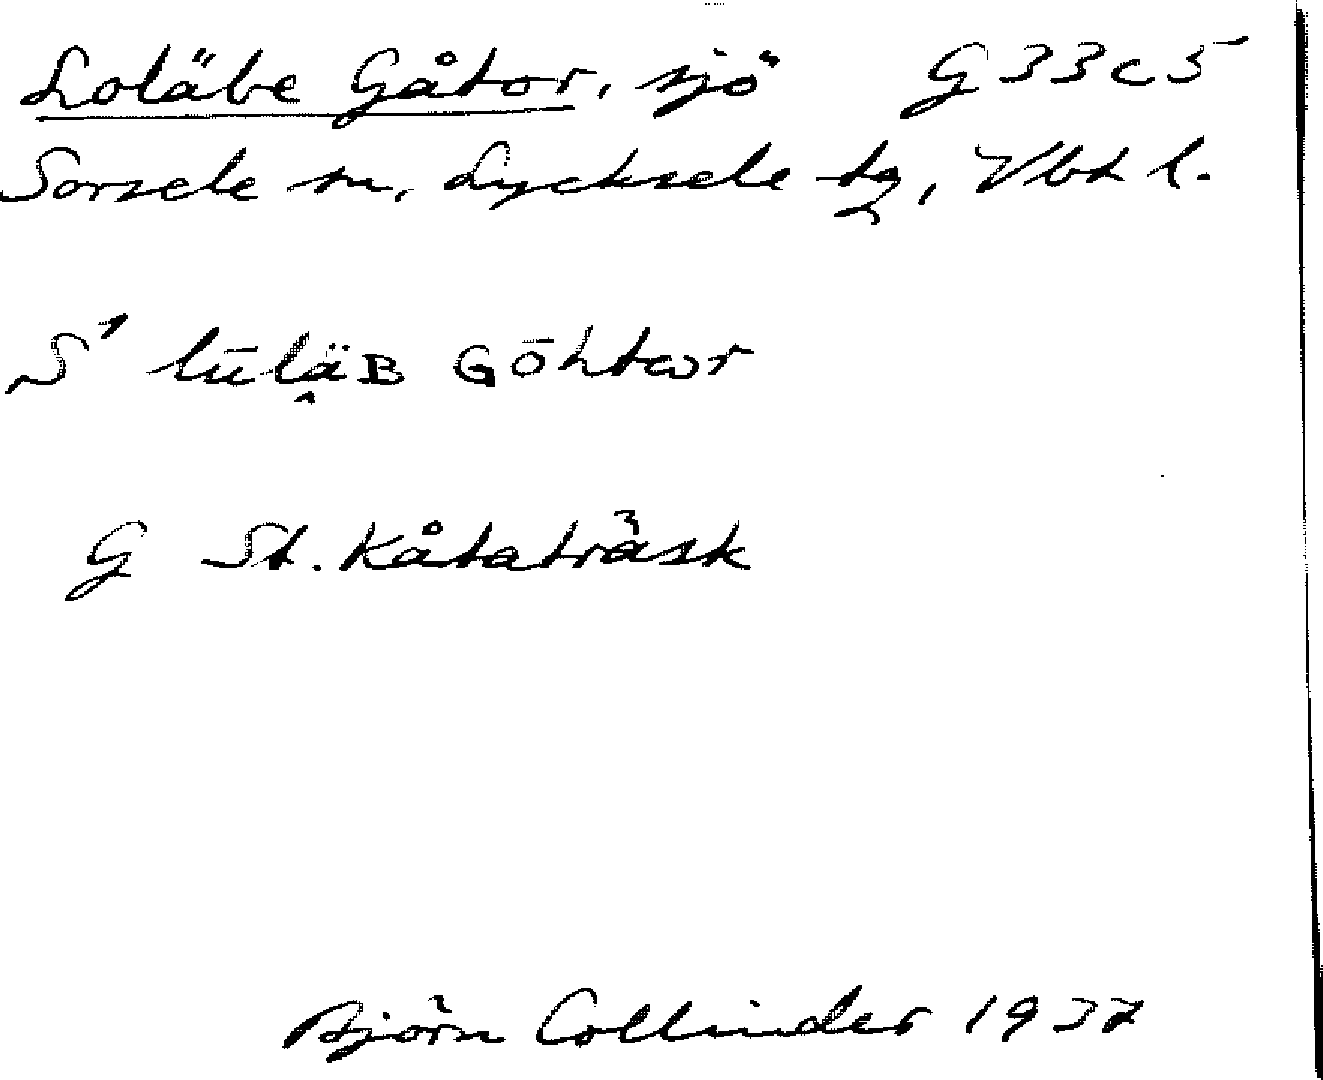 Loläbe Gåtor, sjö G33c5
Sorsele sn, Lycksele tg, Vbt l.
S' lūlä̭B Gōhtωr
G St. Kåtaträsk
Björn Collinder 1937